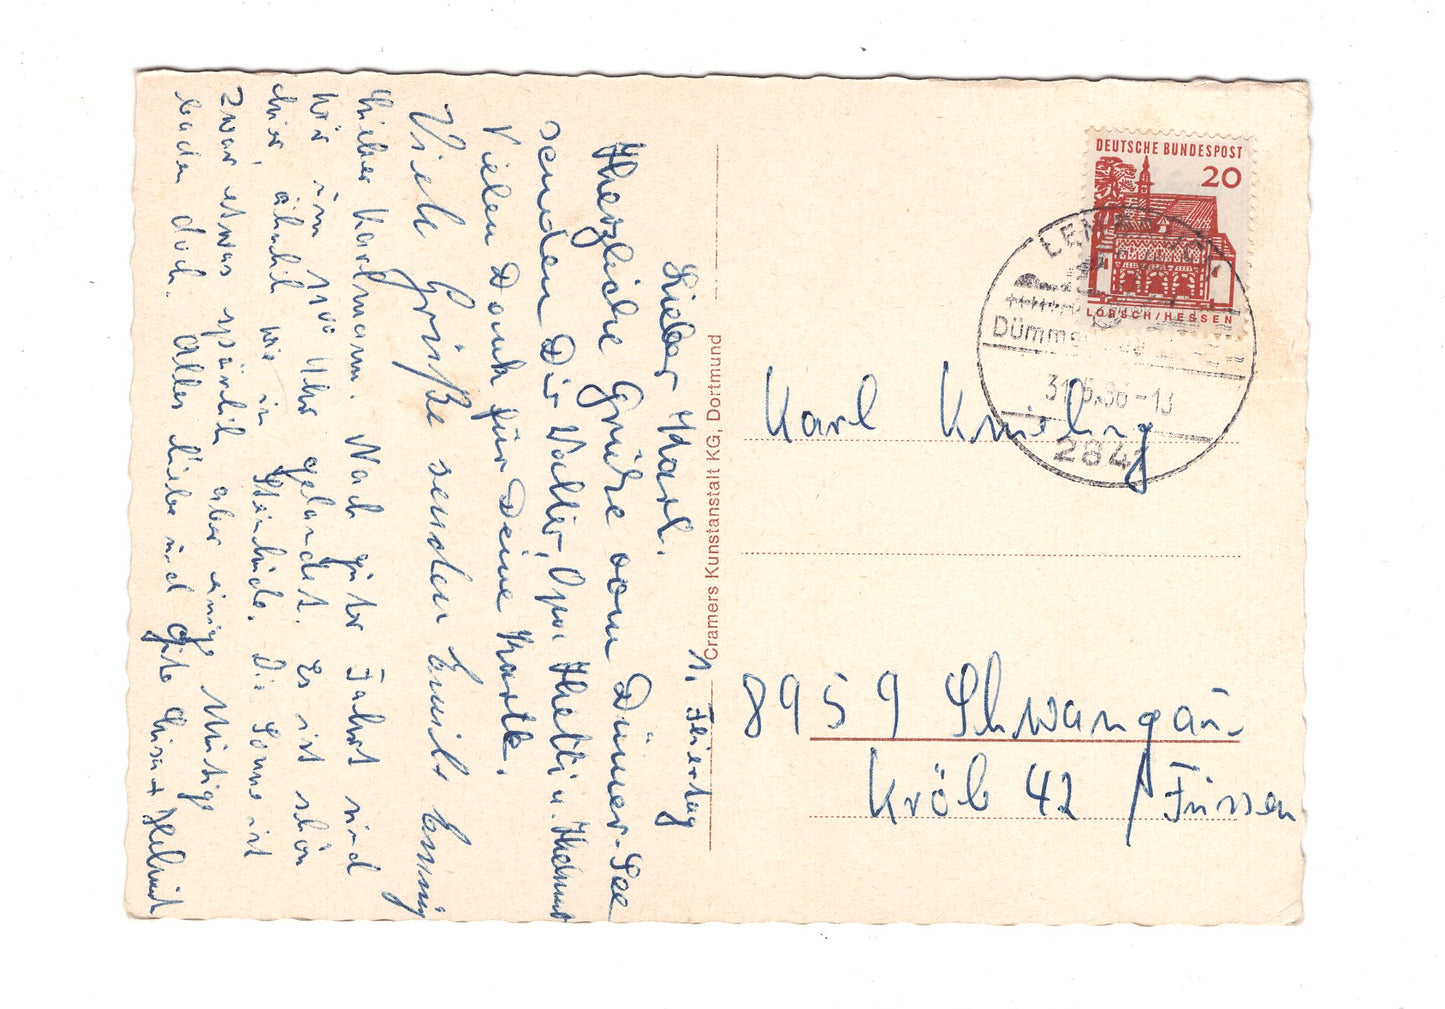 1. Feiertag
Lieber Karl.
Herzliche Grüße vom Dümer-See
senden Dir Walter, Opa Hetti u. Helmut
Vielen Dank für Deine Karte.
Viele Grüße senden
Lieber Karlmann. Nach guter Fahrt sind
wir im Uhr gelandet. Es ist schön
hier, ähnlich wie in Die Sonne ist
zwar etwas spärlich aber einige Mutige
baden doch. Alles liebe und gute Helmut
Cramers Kunstanstalt KG, Dortmund
DEUTSCHE BUNDESPOST
20
LORSCH/HESSEN
LEM
Dümm
31.5. -13
284
Karl Knieling
8959 Schwangau
Kröb 42 / Füssen